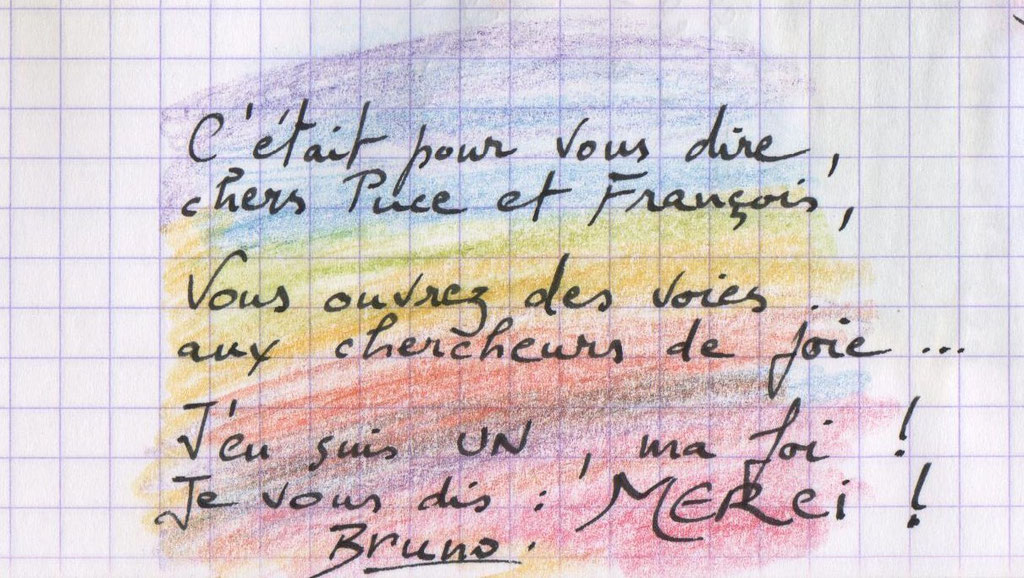 C'était pour vous dire,
chers Puce et François,
Vous ouvrez des voies
aux chercheurs de joie...
J'en suis UN, ma foi !
Je vous dis : MERCi !
Bruno.